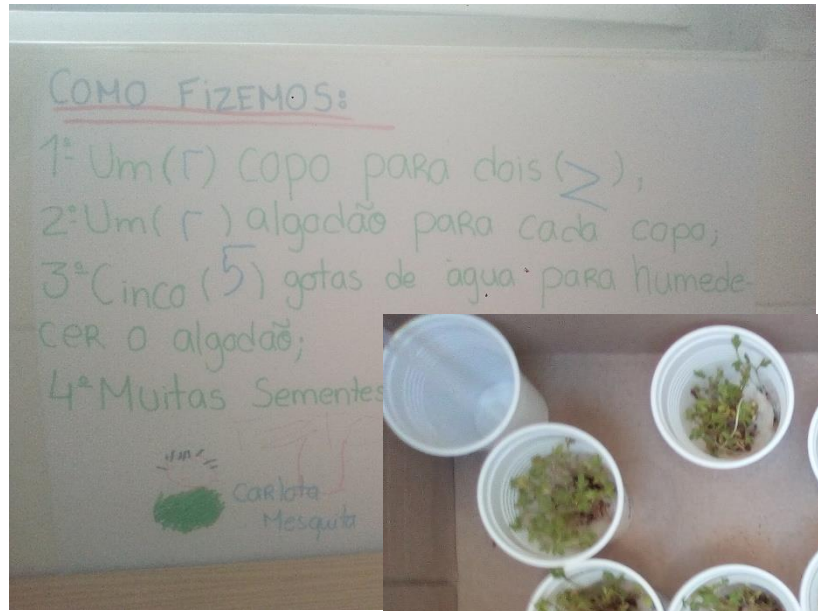 COMO FiZEMOS:
1º Um (1) copo para dois (2);
2º Um (1) algodão para cada copo;
3º Cinco (5) gotas de água para humede-
cer o algodão;
4º Muitas Sementes
Carlota
Mesquita